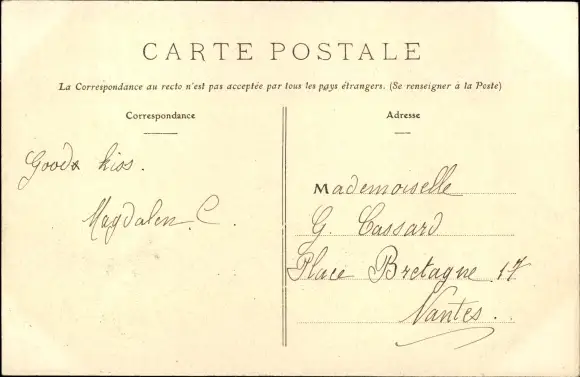 CARTE POSTALE
La Correspondance au recto n'est pas acceptée par tous les pays étrangers. (Se renseigner à la Poste)
Correspondance
Good kiss.
Magdalen. C.
Adresse
Mademoiselle
G. Cassard
Place Bretagne 17
Nantes.